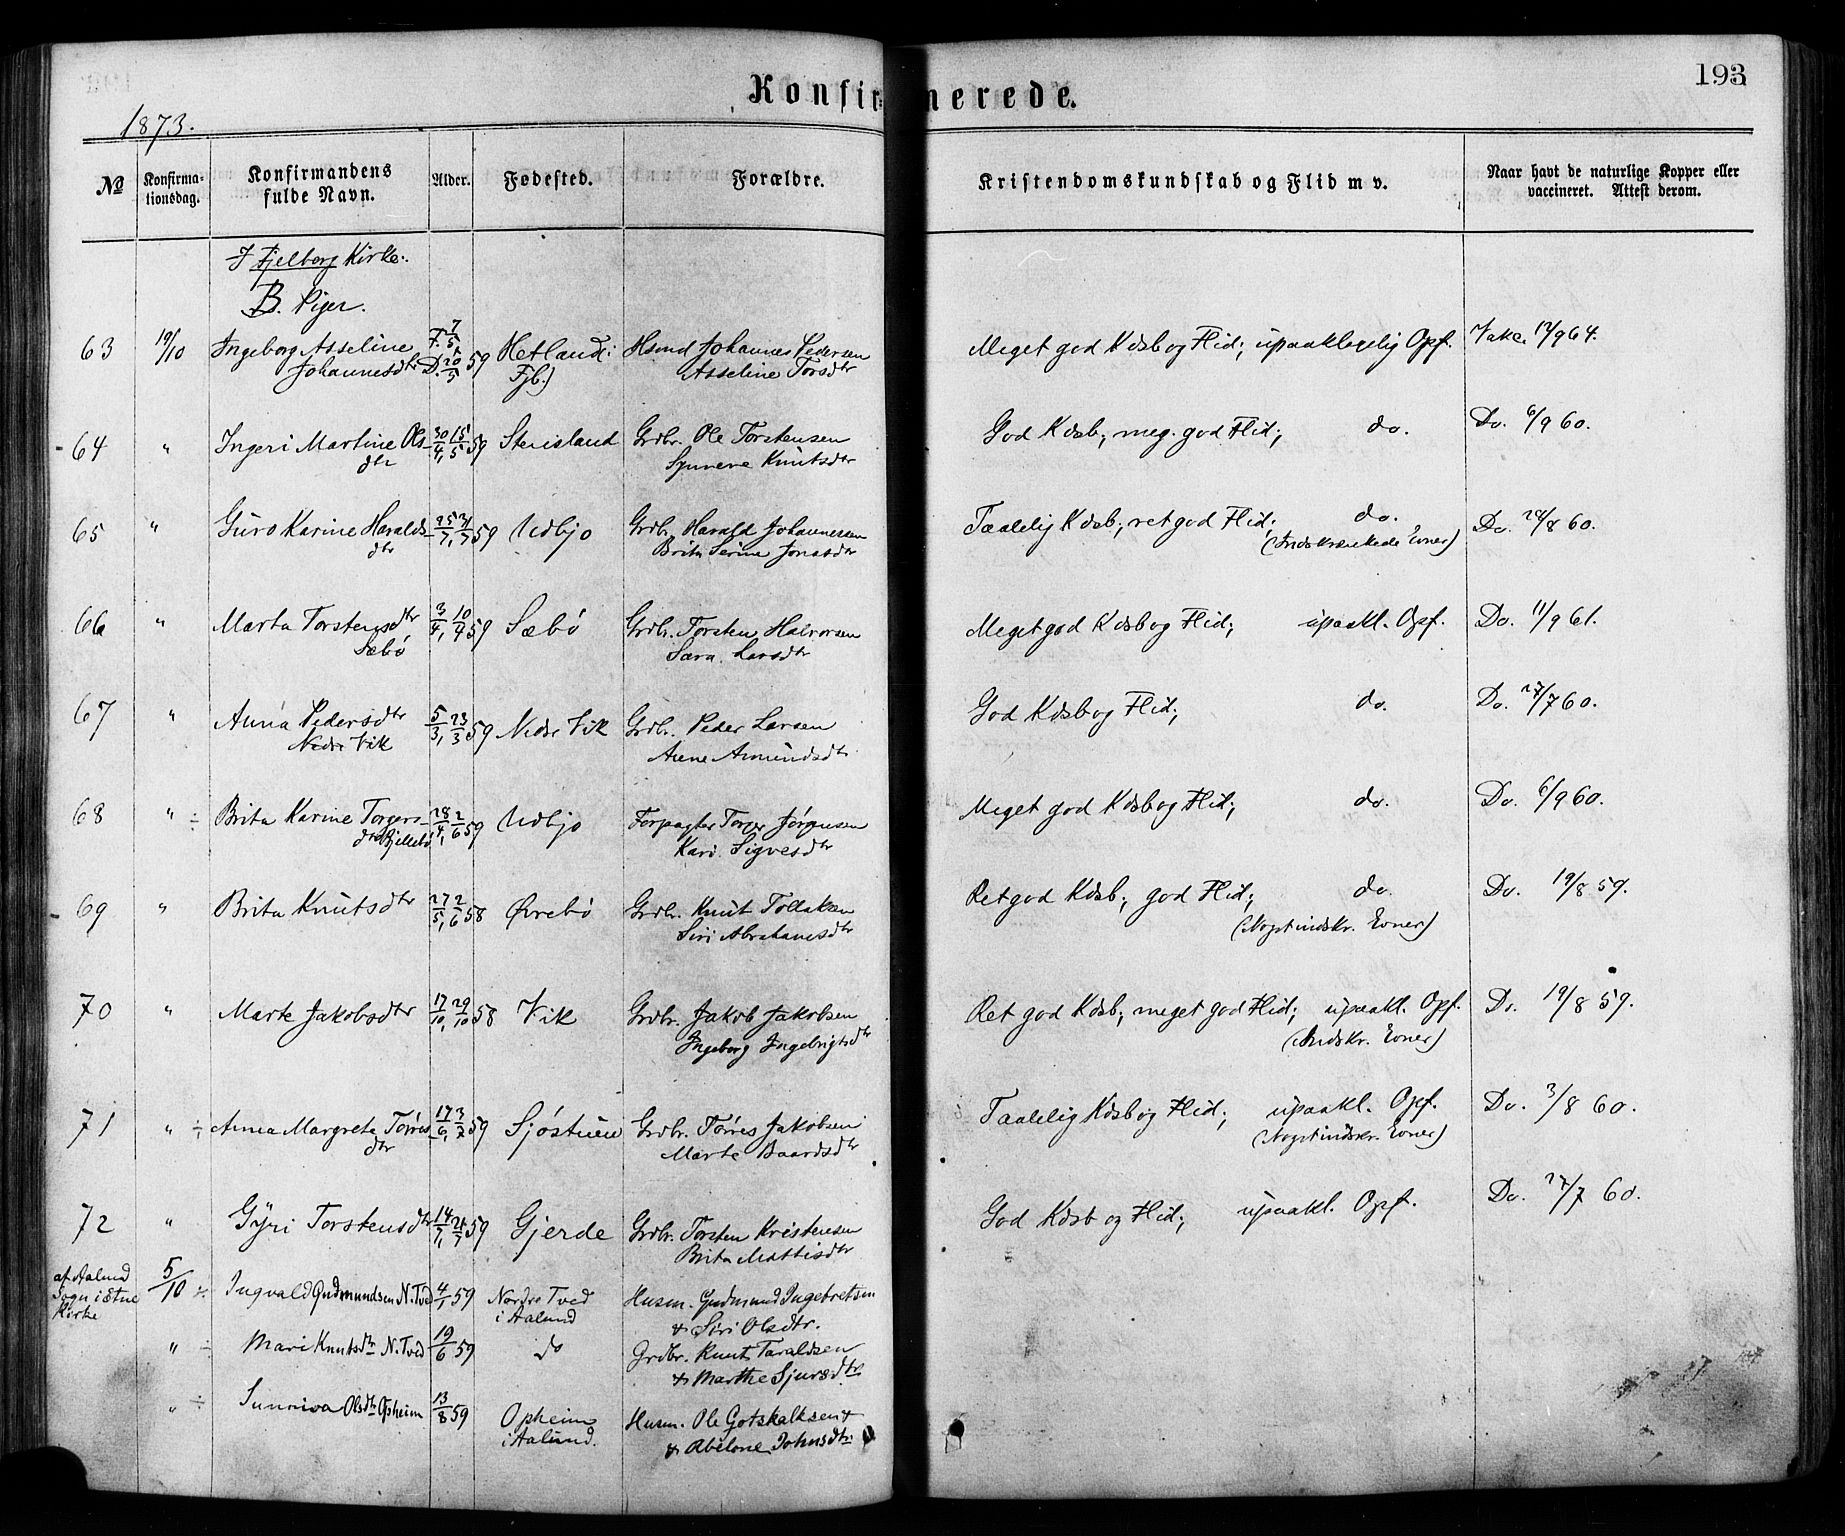 193
Konfirmerede.
1873.
No
Konfirma-
tionsdag.
Konfirmandens
fulde Navn.
Alder.
Fødested.
Forældre.
Kristendomskundskab og Flid m v.
Naar havt de naturlige Kopper eller
vaccineret. Attest derom.
I Fjelberg Kirke.
B. Piger.
63 19/10 Ingeborg Asseline F. 7/5 Hetland: Hsmd Johannes Pedersen Meget god Kdsb og Flid; upaaklagelig Opf. Vakc. 12/9 64.
Johannesdtr D. 20/5 59 Fjb.) Asseline Torsdtr
64 " Ingeri Martine Ols- 30/4, 15/5 59 Stenisland Grdbr. Ole Torstensen God Kdsb; meg. god Flid; do. Do. 6/9 60.
dtr Synneve Knutsdtr
65 " Guro Karine Haralds- 25/7, 31/7 59 Udbjo Grdbr. Harald Johannesen Taalelig Kdsb; ret god Flid; do. Do. 24/8 60.
dtr Brita Serine Jonsdtr (Indskrænkede Evner)
66 " Marta Torstensdtr 3/4, 10/4 59 Sæbö Grdbr. Torsten Halvorsen Meget god Kdsb og Flid; upaakl. Opf. Do. 11/9 61.
Sæbö Sara Larsdtr
67 " Anna Pedersdtr 5/3, 23/3 59 Nedre Vik Grdbr. Peder Larsen God Kdsb og Flid; do. Do. 27/7 60.
Nedre Vik Anne Amundsdtr
68 " ÷ Brita Karine Torgers- 28/4, 2/6 59 Udbjo Forpagter Torger Jörgensen Meget god Kdsb og Flid; do. Do. 6/9 60.
dtr Kari Sigvesdtr
69 " Brita Knutsdtr 27/5, 2/6 58 Øvrebö Grdbr. Knut Tollaksen Ret god Kdsb; god Flid; do. Do. 19/8 59.
Siri Abrahamsdtr (Noget indskr. Evner)
70 " Marte Jakobsdtr 17/10, 29/10 58 Vik Grdbr. Jakob Jakobsen Ret god Kdsb; meget god Flid; upaakl. Opf. Do. 19/8 59.
Ingeborg Ingebrigtsdtr (Indskr. Evner)
71 " ÷ Anna Margreta Törres- 17/6, 3/7 59 Sjöstuen Grdbr. Törres Jakobsen Taalelig Kdsb og Flid; upaakl. Opf. Do. 3/8 60.
dtr Marte Baardsdtr (Noget indskr. Evner)
72 " Gyri Torstensdtr 14/7, 24/7 59 Gjerde Grdbr. Torsten Kristensen God Kdsb og Flid; upaakl. Opf. Do. 27/7 60.
Brita Mattisdtr
af Aalund
Sogn i Ætne
Kirke
5/10 ÷ Ingvald Gudmundsen N. Tved 4/1 59 Nordre Tved Husm. Gudmund Ingebretsen
i Aalund & Siri Olsdtr.
" ÷ Mari Knutsdtr N. Tved 19/6 59 do Grdbr. Knut Taraldsen
& Marthe Sjursdtr
" ÷ Sunniva Olsdtr Opheim 13/8 59 Opheim Husm. Ole Gotskalksen &
i Aalund. & Abelone Johnsdtr